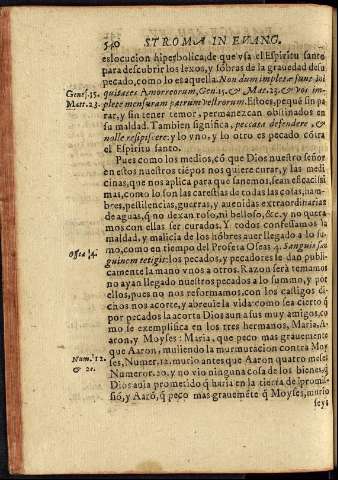 540 STROMA IN EVANG.
eslocucion hiperbolica, de que vsa el Espiritu santo
para descubrir los lexos, y sõbras de la grauedad desu
pecado, como lo es aquella. Non dum impletæ sunt ini
Genes. 15. quitates Amorreorum, Gen. 15. & Mat. 23. & vos im
Matt. 23. plete mensuram patrum vestrorum. Esto es, pequẽ sin pa
rar, y sin tener temor, permanezcan obstinados en
su maldad. Tambien significa, peccata defendere, &
nolle resipiscere: y lo vno, y lo otro es pecado cõtra
el Espiritu santo.
Pues como los medios, cõ que Dios nuestro señor
en estos nuestros tiẽpos nos quiere curar, y las medi
cinas, que nos aplica para que sanemos, sean eficacissi
mas, como lo son las carestias de todas las cosas, ham
bres, pestilencias, guerras, y auenidas extraordinarias
de aguas, q̃ no dexan roso, ni belloso, &c. y no quera
mos con ellas ser curados. Y todos confessamos la
maldad, y malicia de los hõbres auer llegado a lo su
Osseæ 4. mo, como en tiempo del Profeta Oseas 4. Sanguis san
guinem tetigit: los pecados, y pecadores se dan publi
camente la mano vnos a otros. Razon será temamos
no ayan llegado nuestros pecados a lo summo, y por
ellos, pues no nos reformamos con los castigos di
chos nos acorte, y abreuie la vida: como sea cierto q̃
por pecados la acorta Dios aun a sus muy amigos, co
mo se exemplifica en los tres hermanos, Maria, A-
aron, y Moyses: Maria, que peco mas grauemente
que Aaron, mouiendo la murmuracion contra Moy
Num. 12. ses, Numer. 12. murio antes que Aaron quatro meses
& 20. Numeror. 20. y no vio ninguna cosa de los bienes, q̃
Dios auia prometido q̃ haria en la tierra de promis
siõ, y Aarõ, q̃ peco mas grauemẽte q̃ Moyses, murio
seys